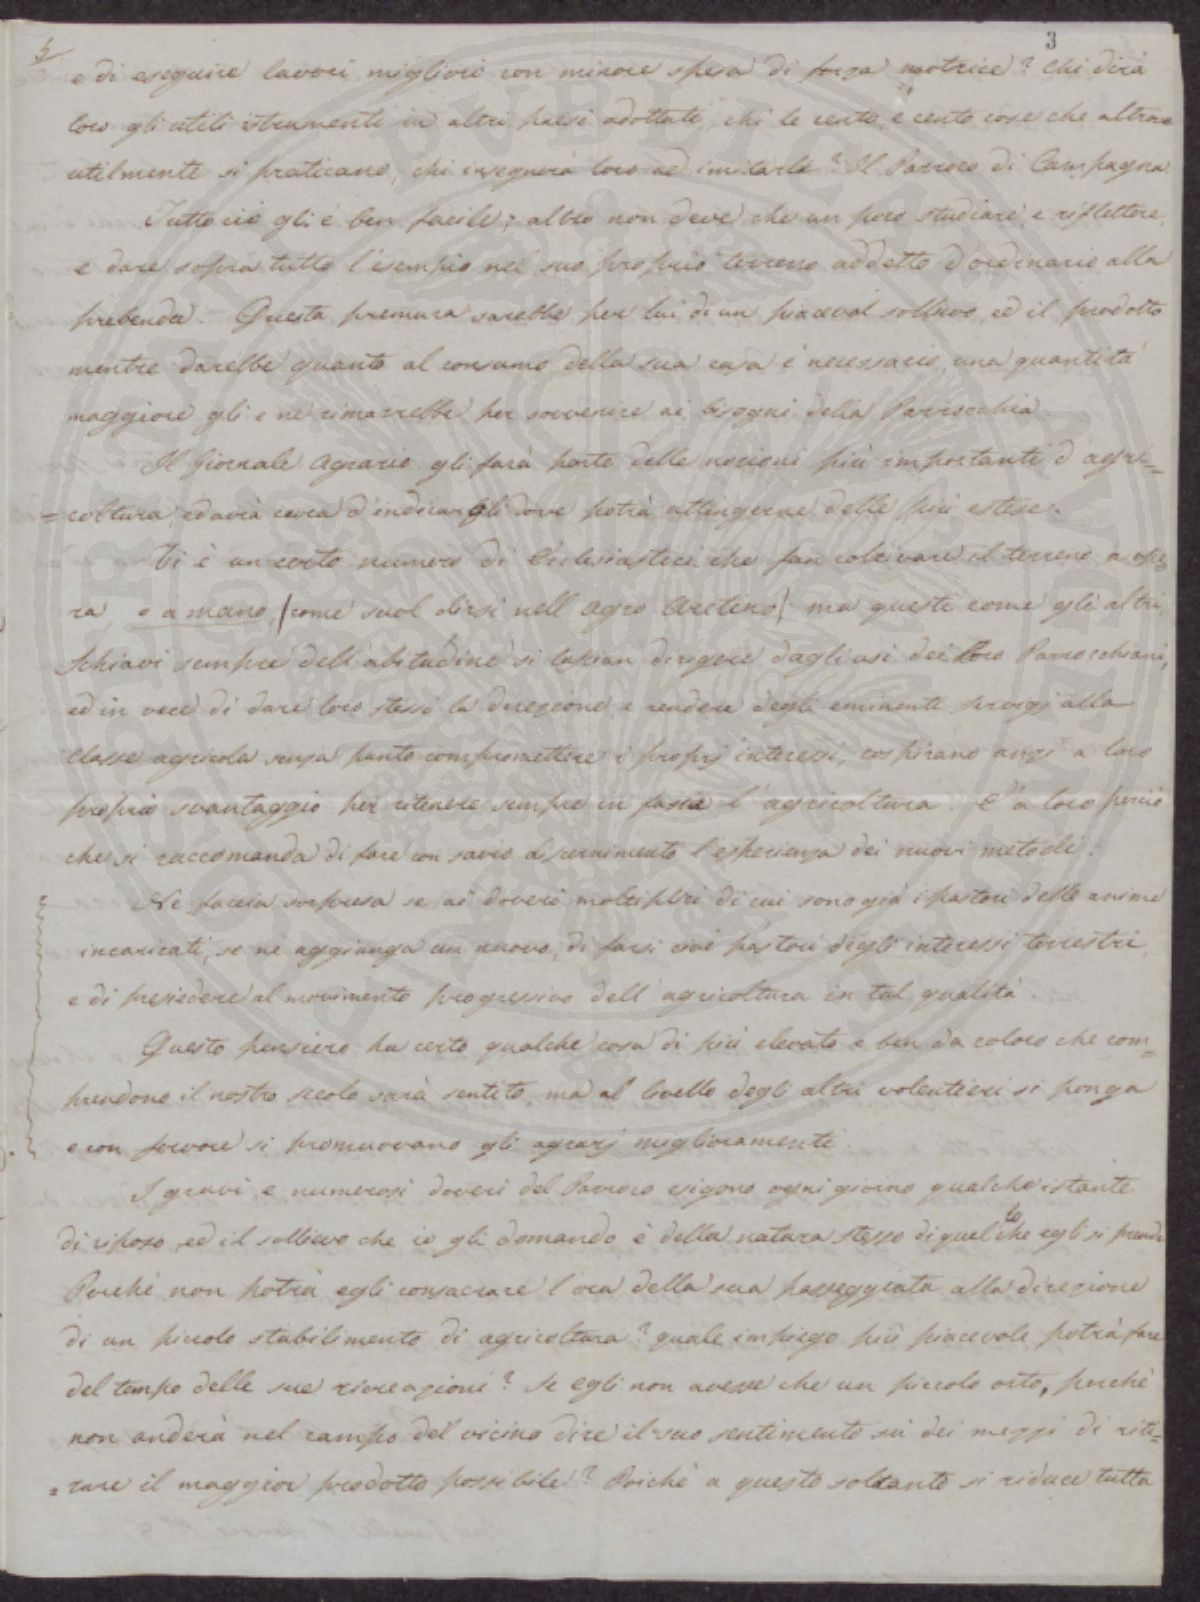 5
3
e di eseguire lavori migliori con minore spesa di forza motrice? Chi dirà
loro gli utili istrumenti in altri paesi adottati, chi le cento, e cento cose che altrove
utilmente si praticano, chi insegnerà loro ad imitarle? Il Parroco di Campagna.
Tutto ciò gli è ben facile; altro non deve che un poco studiare, e riflettere,
e dare sopra tutto l'esempio nel suo proprio terreno addetto d'ordinario alla
prebenda. Questa premura sarebbe per lui di un piacevol sollievo, ed il prodotto
mentre darebbe quanto al consumo della sua casa è necessario, una quantità
maggiore gli e ne rimarrebbe per sovvenire ai bisogni della Parrocchia.
Il Giornale Agrario gli farà parte delle nozioni più importanti d'agri=
=coltura, ed avrà cura d'indicargli dove potrà attingerne delle più estese.
Vi è un certo numero di Ecclesiastici che fan coltivare il terreno a ope=
ra o a mano, (come suol dirsi nell'agro Aretino) ma questi come gli altri,
schiavi sempre dell'abitudine si lascian dirigere dagli usi dei loro Parrocchiani,
ed in vece di dare loro stessi la direzione, e rendere degli eminenti servigj alla
classe agricola senza punto compromettere i proprj interessi, cospirano anzi a loro
proprio svantaggio per ritenere sempre in fascie l'agricoltura. E' a loro perciò
che si raccomanda di fare con savio discernimento l'esperienza dei nuovi metodi.
Nè faccia sorpresa se ai doveri moltiplici di cui sono già i pastori delle anime
incaricati, se ne aggiunga un nuovo, di farsi cioè pastori degli interessi terrestri,
e di presiedere al movimento progressivo dell'agricoltura in tal qualità.
Questo pensiero ha certo qualche cosa di più elevato e ben da coloro che com=
prendono il nostro secolo sarà sentito, ma al livello degli altri volentieri si ponga
e con fervore si promuovano gli agrarj miglioramenti.
I gravi, e numerosi doveri del Parroco esigono ogni giorno qualche istante
di riposo, ed il sollievo che io gli domando è della natura stessa di quello che egli si prende
Perchè non potrà egli consacrare l'ora della sua passeggiata alla direzione
di un piccolo stabilimento di agricoltura? quale impiego più piacevole potrà fare
del tempo delle sue ricreazioni? Se egli non avesse che un piccolo orto, perchè
non anderà nel campo del vicino dire il suo sentimento su dei mezzi di riti=
=rare il maggior prodotto possibile? Poichè a questo soltanto si riduce tutta